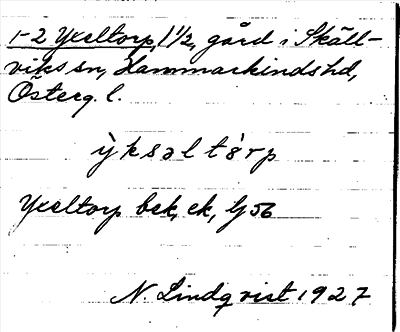 1-2 Yxeltorp, 1 1/2, gård i Skäll-
viks sn, Hammarkinds hd,
Österg. l.
y̌ksəltɵ̀rp
Yxeltorp bek, ek, Lj 56
N. Lindqvist 1927